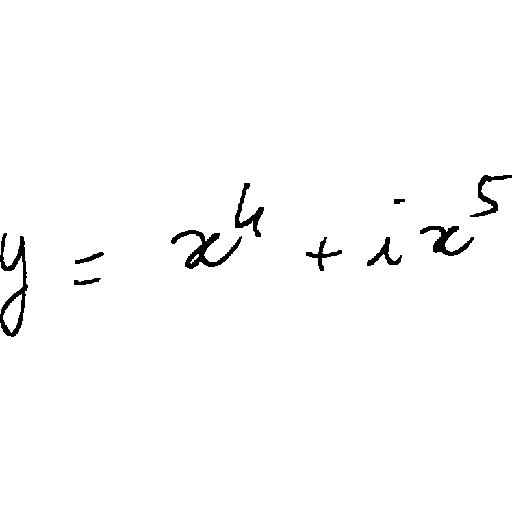 y = x⁴ + i x⁵